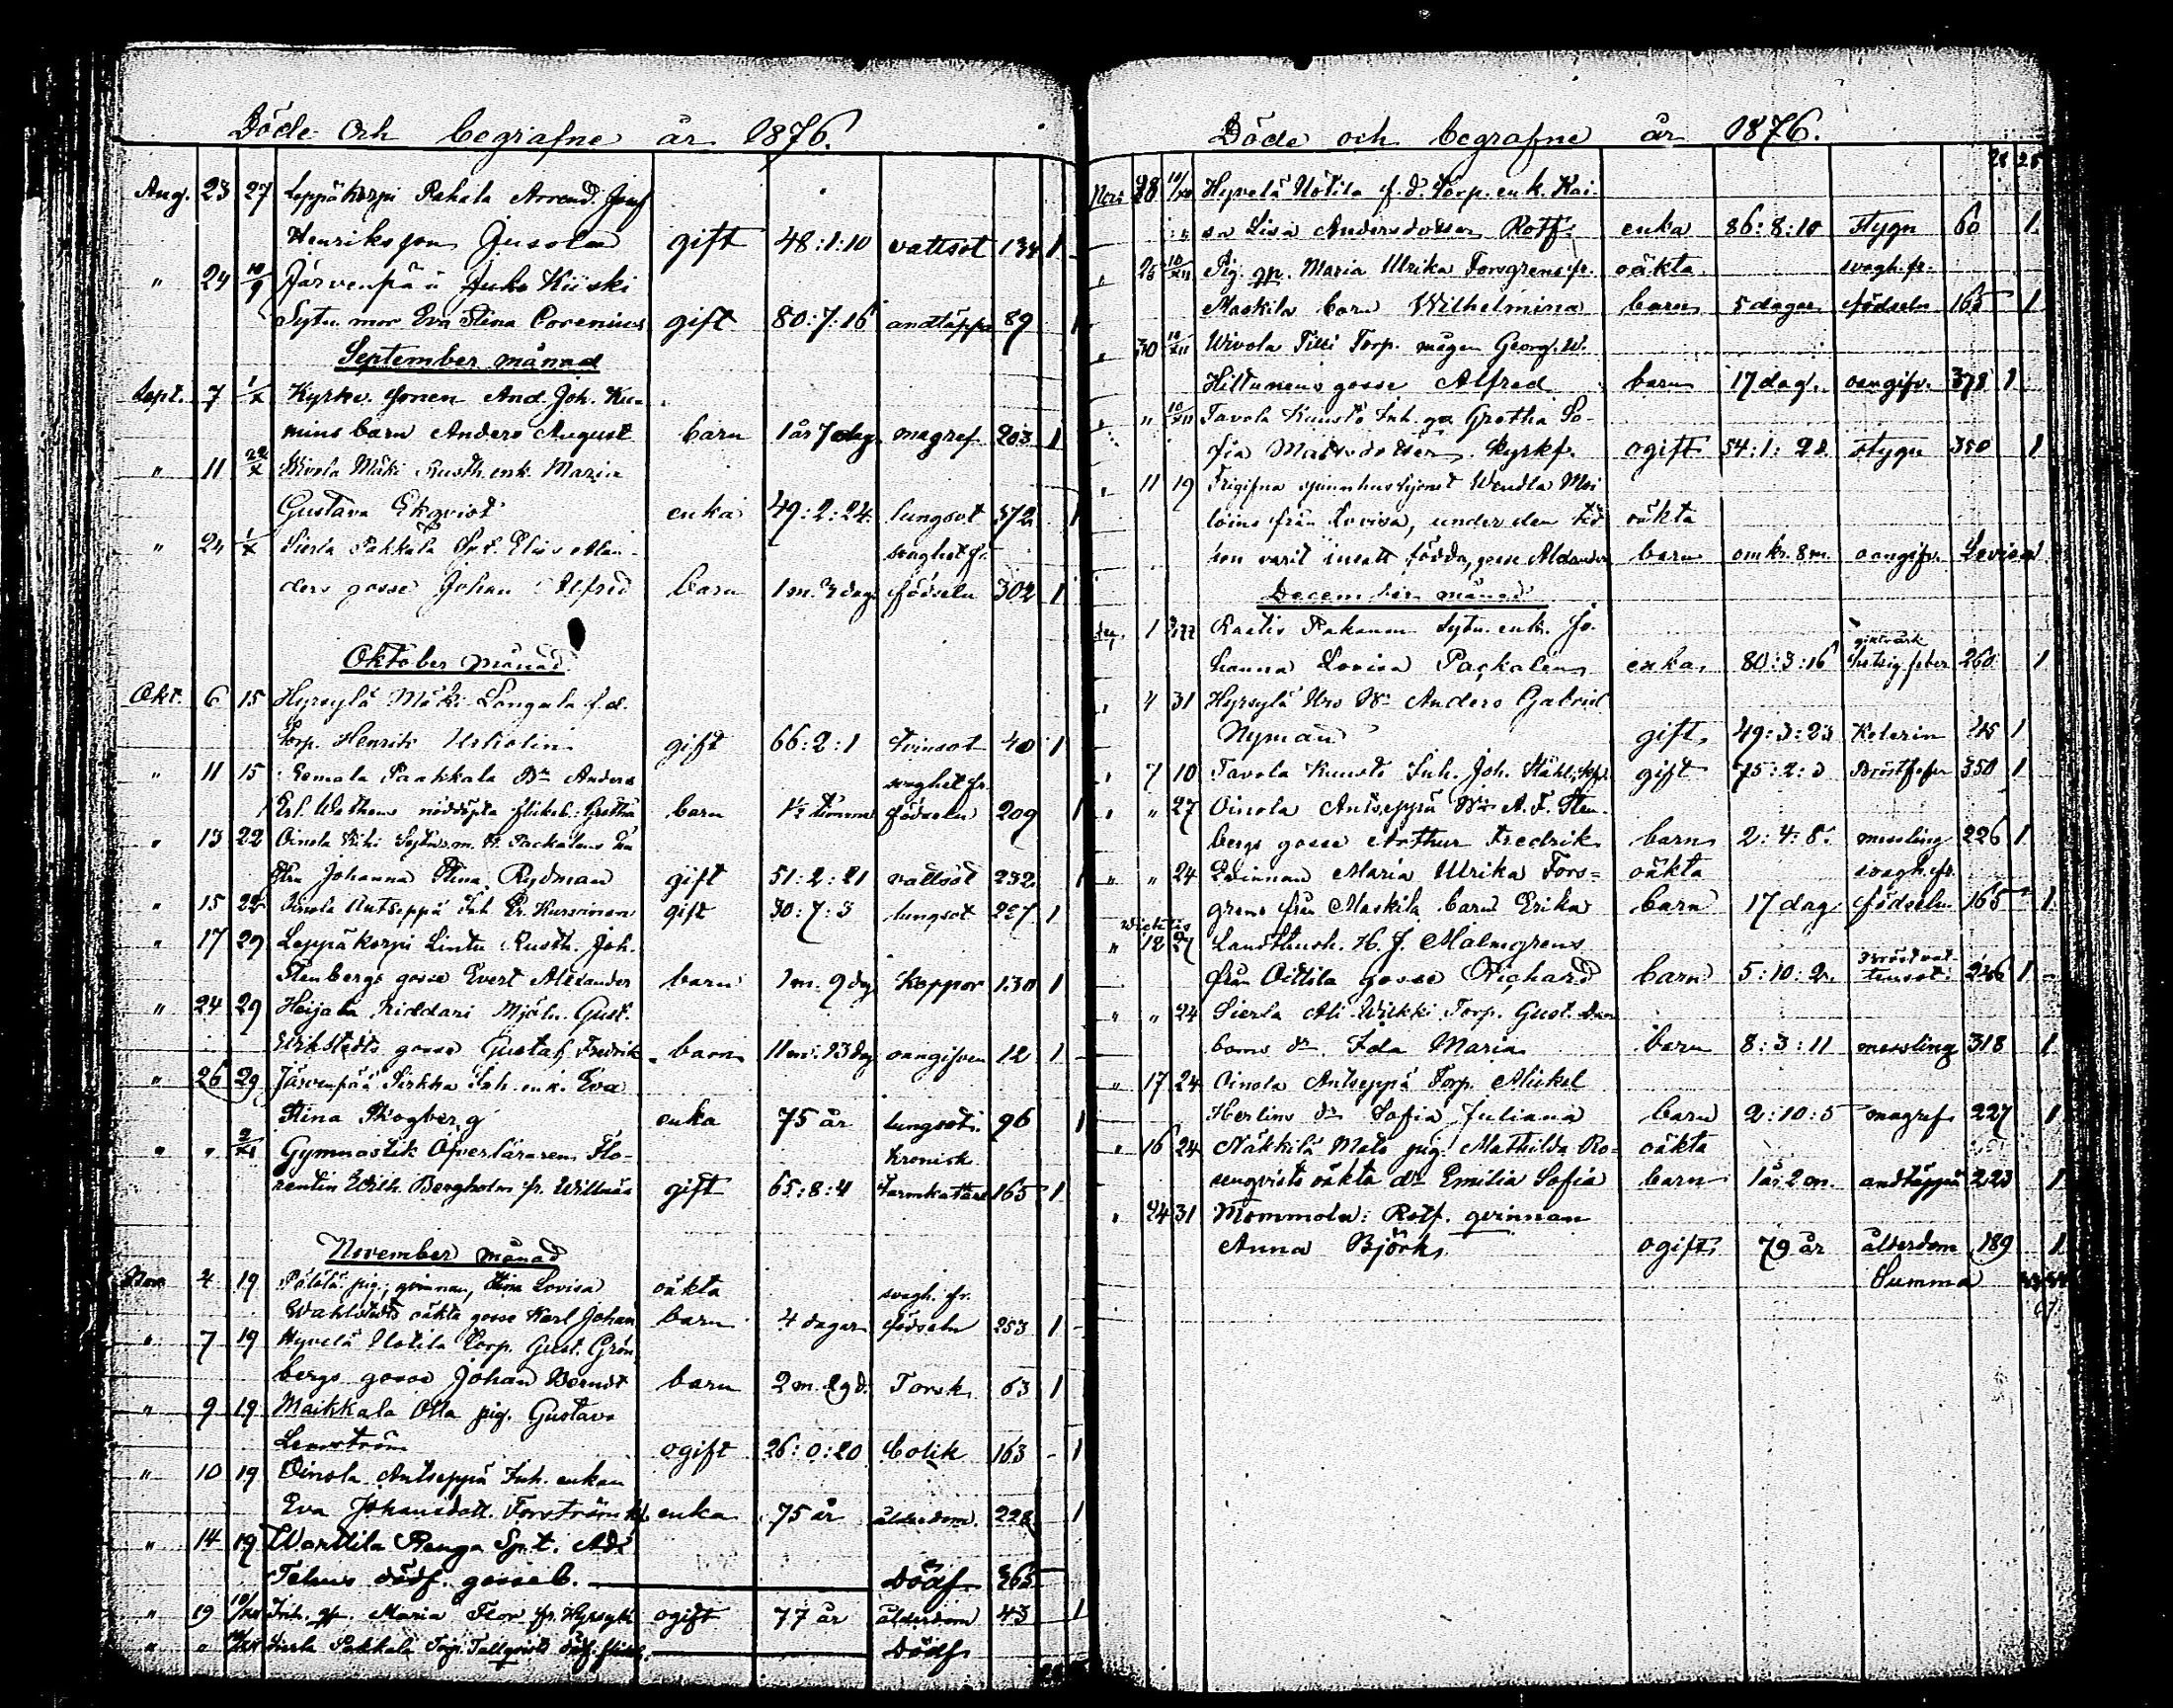 Döde och begrafne år 1876.
Aug. 23 27 Leppäkorpi Pahala Arrend. Josef
Henriksson Jusola gift 48:1:10 vattsot 134 1
" 24 10/9 Järvenpää Juho Kiiski
Sytn. mor Eva Stina Corenius gift 80:7:16 andtäppa 89 1
September månad
Sept. 7 1/X Kyrkv. sonen And. Joh. Ku-
mins barn Anders August barn 1 år 7 dag. magref 203 1
" 11 22/X Mäki Rusth. enk. Maria
Gustava Ekqvist enka 49:2:24 lungsot 372 1
" 24 1/X Sierla Pakkala Elias
svaghet fr.
ders gosse Johan Alfred barn 1 m. 3 dag. födseln 302 1
Oktober månad
Okt. 6 15 Hyrsylä Mäki Langala f.d.
Torp. Henrik gift 66:2:1 tvinsot 40 1
" 11 15 Gemala Paakkala Anders
svaghet fr.
nöddöpta flickeb. Gretha barn 1½ timma födseln 209 1
" 13 22 Oinola Packalens
Johanna Stina Rydman gift 51:2:21 vattsot 232 1
" 15 22 Oinola Antseppä Inh. Er. gift 30:7:3 lungsot 227 1
" 17 29 Leppäkorpi Lintu Rusth. Joh.
Stenbergs gosse Evert Alexander barn 1 m. 9 dag koppor 130 1
" 24 29 Heijala Riddari Mjöln. Gust.
Wikstedts gosse Gustaf Fredrik barn 11 m. 23 dag oangifven 12 1
" 26 29 Järvenpää Sirkka Inh. enk. Eva
Stina Skogberg enka 75 år lungsot 96 1
" " 2/XI Gymnastik Öfverläraren Flo-
kronisk
rentin Wilh. Bergholm fr. Willnäs gift 65:8:4 tarmkatarr 165 1
November månad
Nov. 4 19 Pälölä pig., qvinnan, Stina Lovisa oäkta svagh. fr.
Wahlstedts oäkta gosse Karl Johan barn 4 dagar födseln 253 1
" 7 19 Hyvelä Uotila Torp. Gust. Grön-
bergs gosse Johan Berndt barn 2 m. 29 d. Torsk 63 1
" 9 19 Maikkala Olla pig. Gustava
Lemström ogift 26:0:20 Colik 163 1
" 10 19 Oinola Antseppä Inh. enkan
Eva Johansdott. Forström enka 75 år ålderdom 228 1
" 14 19 Warttila Renga
dödf. gosseb. Dödf. 265
" 19 10/XII Inh. qv. Maria Flor fr. Hyrsylä ogift 77 år ålderdom 43 1
" " 10/XII Sierla Pakkala Torp. Tallqvists dödf. Dödf.
Döde och begrafne år 1876.
28 25
Nov. 28 10/XII Hyvelä Uotila f.d. Torp. enk. Kai-
sa Lisa Andersdotter Rotf. enka 86:8:10 stygn 60 1
" 26 10/XII Pig. qv. Maria Ulrika Forsgrens fr. oäkta svagh. fr.
Maskila barn Wilhelmina barn 5 dagar födseln 165 1
" 30 10/XII Wivola Tilli Torp. mågen Georg W.
Hiltunens gosse Alfred barn 17 dag. oangifv. 378 1
" " 10/XII Tavola Kuusto Inh. qv. Gretha So-
fia Matsdotter kyrkf. ogift 54:1:28 stygn 350 1
" 11 19 Frigifna spinnhustjonet Wendla Mei
loins från Lovisa, under den tid oäkta
hon varit insatt födda, gosse Alexander barn omkr. 8 m. oangifv. Lovisa
December månad
Dec. 1 Rastis Pakanen Sytn. enk. Jo-
giktvärk
hanna Lovisa Packalen enka 80:3:16 hetsig feber 260 1
" 4 31 Hyrsylä Uro Anders Gabriel
Nyman gift 49:3:23 Kolerin 45 1
" 7 10 Tavola Kuusto Inh. Joh. Ståhl, gift 75:2:3 Bröstfeber 350 1
" " 27 Oinola Antseppä A. F. Sten-
bergs gosse Arthur Fredrik barn 2:4:8 messling 226 1
" " 24 Qvinnan Maria Ulrika Fors- oäkta svagh. fr.
grens från Maskila barn Erika barn 17 dag födseln 165 1
Wichtis
" 12 27 Landthush. H. J. Malmgrens
från Oittila gosse Richard barn 5:10:2 tensot 246 1
" " 24 Sierla Ali Wikki Torp. Gust.
boms dr Ida Maria barn 8:3:11 messling 318 1
" 17 24 Oinola Antseppä Torp. Mickel
Herlins dr Sofia Juliana barn 2:10:5 magref 227 1
" 16 24 Näkkilä Mats pig. Mathilda Ro- oäkta
senqvists oäkta dr Emilia Sofia barn 1 år 2 m. andtäppa 223 1
" 24 31 Mommola: Rotf. qvinnan
Anna Björk ogift 79 år ålderdom 189 1
Summa